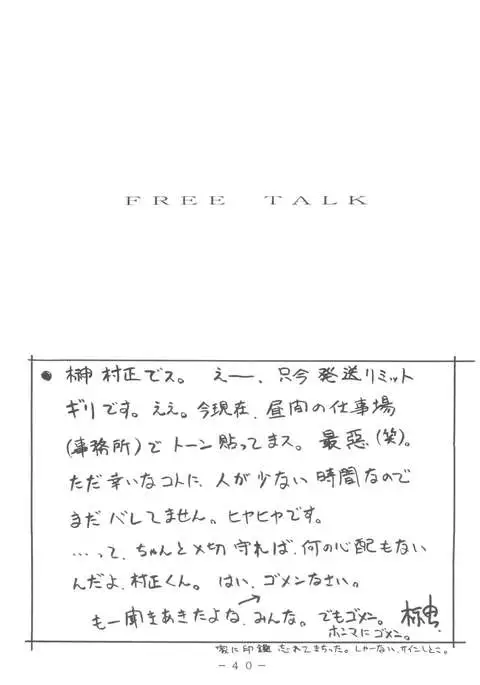 FREE TALK
● 榊 村正でス。 えー、只今 発送リミット
ギリです。ええ。今現在、昼間の仕事場
(事務所)で トーン貼ってまス。 最悪(笑)。
ただ 幸いなコトに、人が少ない 時間なので
まだ バレてません。ヒヤヒヤです。
…って、ちゃんと〆切 守れば、何の心配もない
んだよ、村正くん。 はい、ゴメンなさい。
も一聞きあきたよな、みんな。でもゴメン。 榊
ホンマにゴメン。
家に印鑑 忘れてまちった。しゃーない、サインしとこ。
－40－